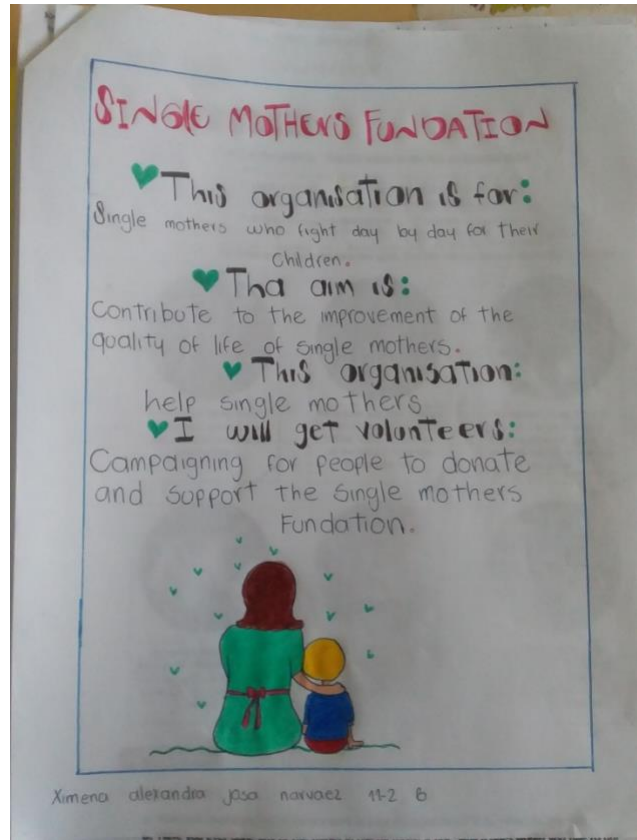 SINGLE MOTHERS FUNDATION
This organisation is for:
Single mothers who fight day by day for their
children.
Tha aim is:
Contribute to the improvement of the
quality of life of single mothers.
This organisation:
help single mothers
I will get volunteers:
Campaigning for people to donate
and support the single mothers
Fundation.
Ximena alexandra josa narvaez 11-2 B